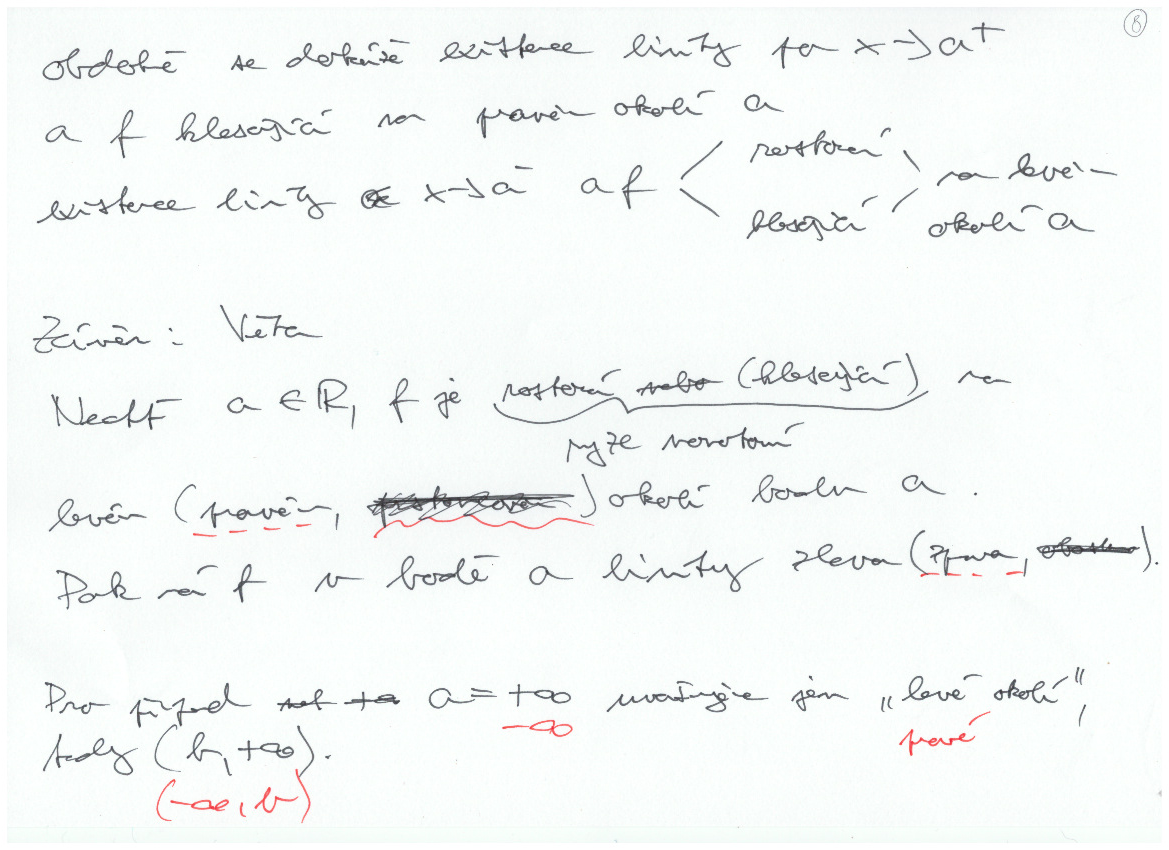 8
obdobně se dokáže existence limity pro x → a⁺
a f klesající na pravém okolí a
existence limity x → a⁻ a f < rostoucí na levém
klesající okolí a
Závěr: Věta
Nechť a ∈ ℝ, f je rostoucí nebo (klesající) na
ryze monotonní
levém (pravém, ) okolí bodu a.
Pak má f v bodě a limity zleva (zprava, ).
Pro případ a = +∞ uvažujme jen „levé okolí",
-∞ pravé
tedy (b, +∞).
(-∞, b)